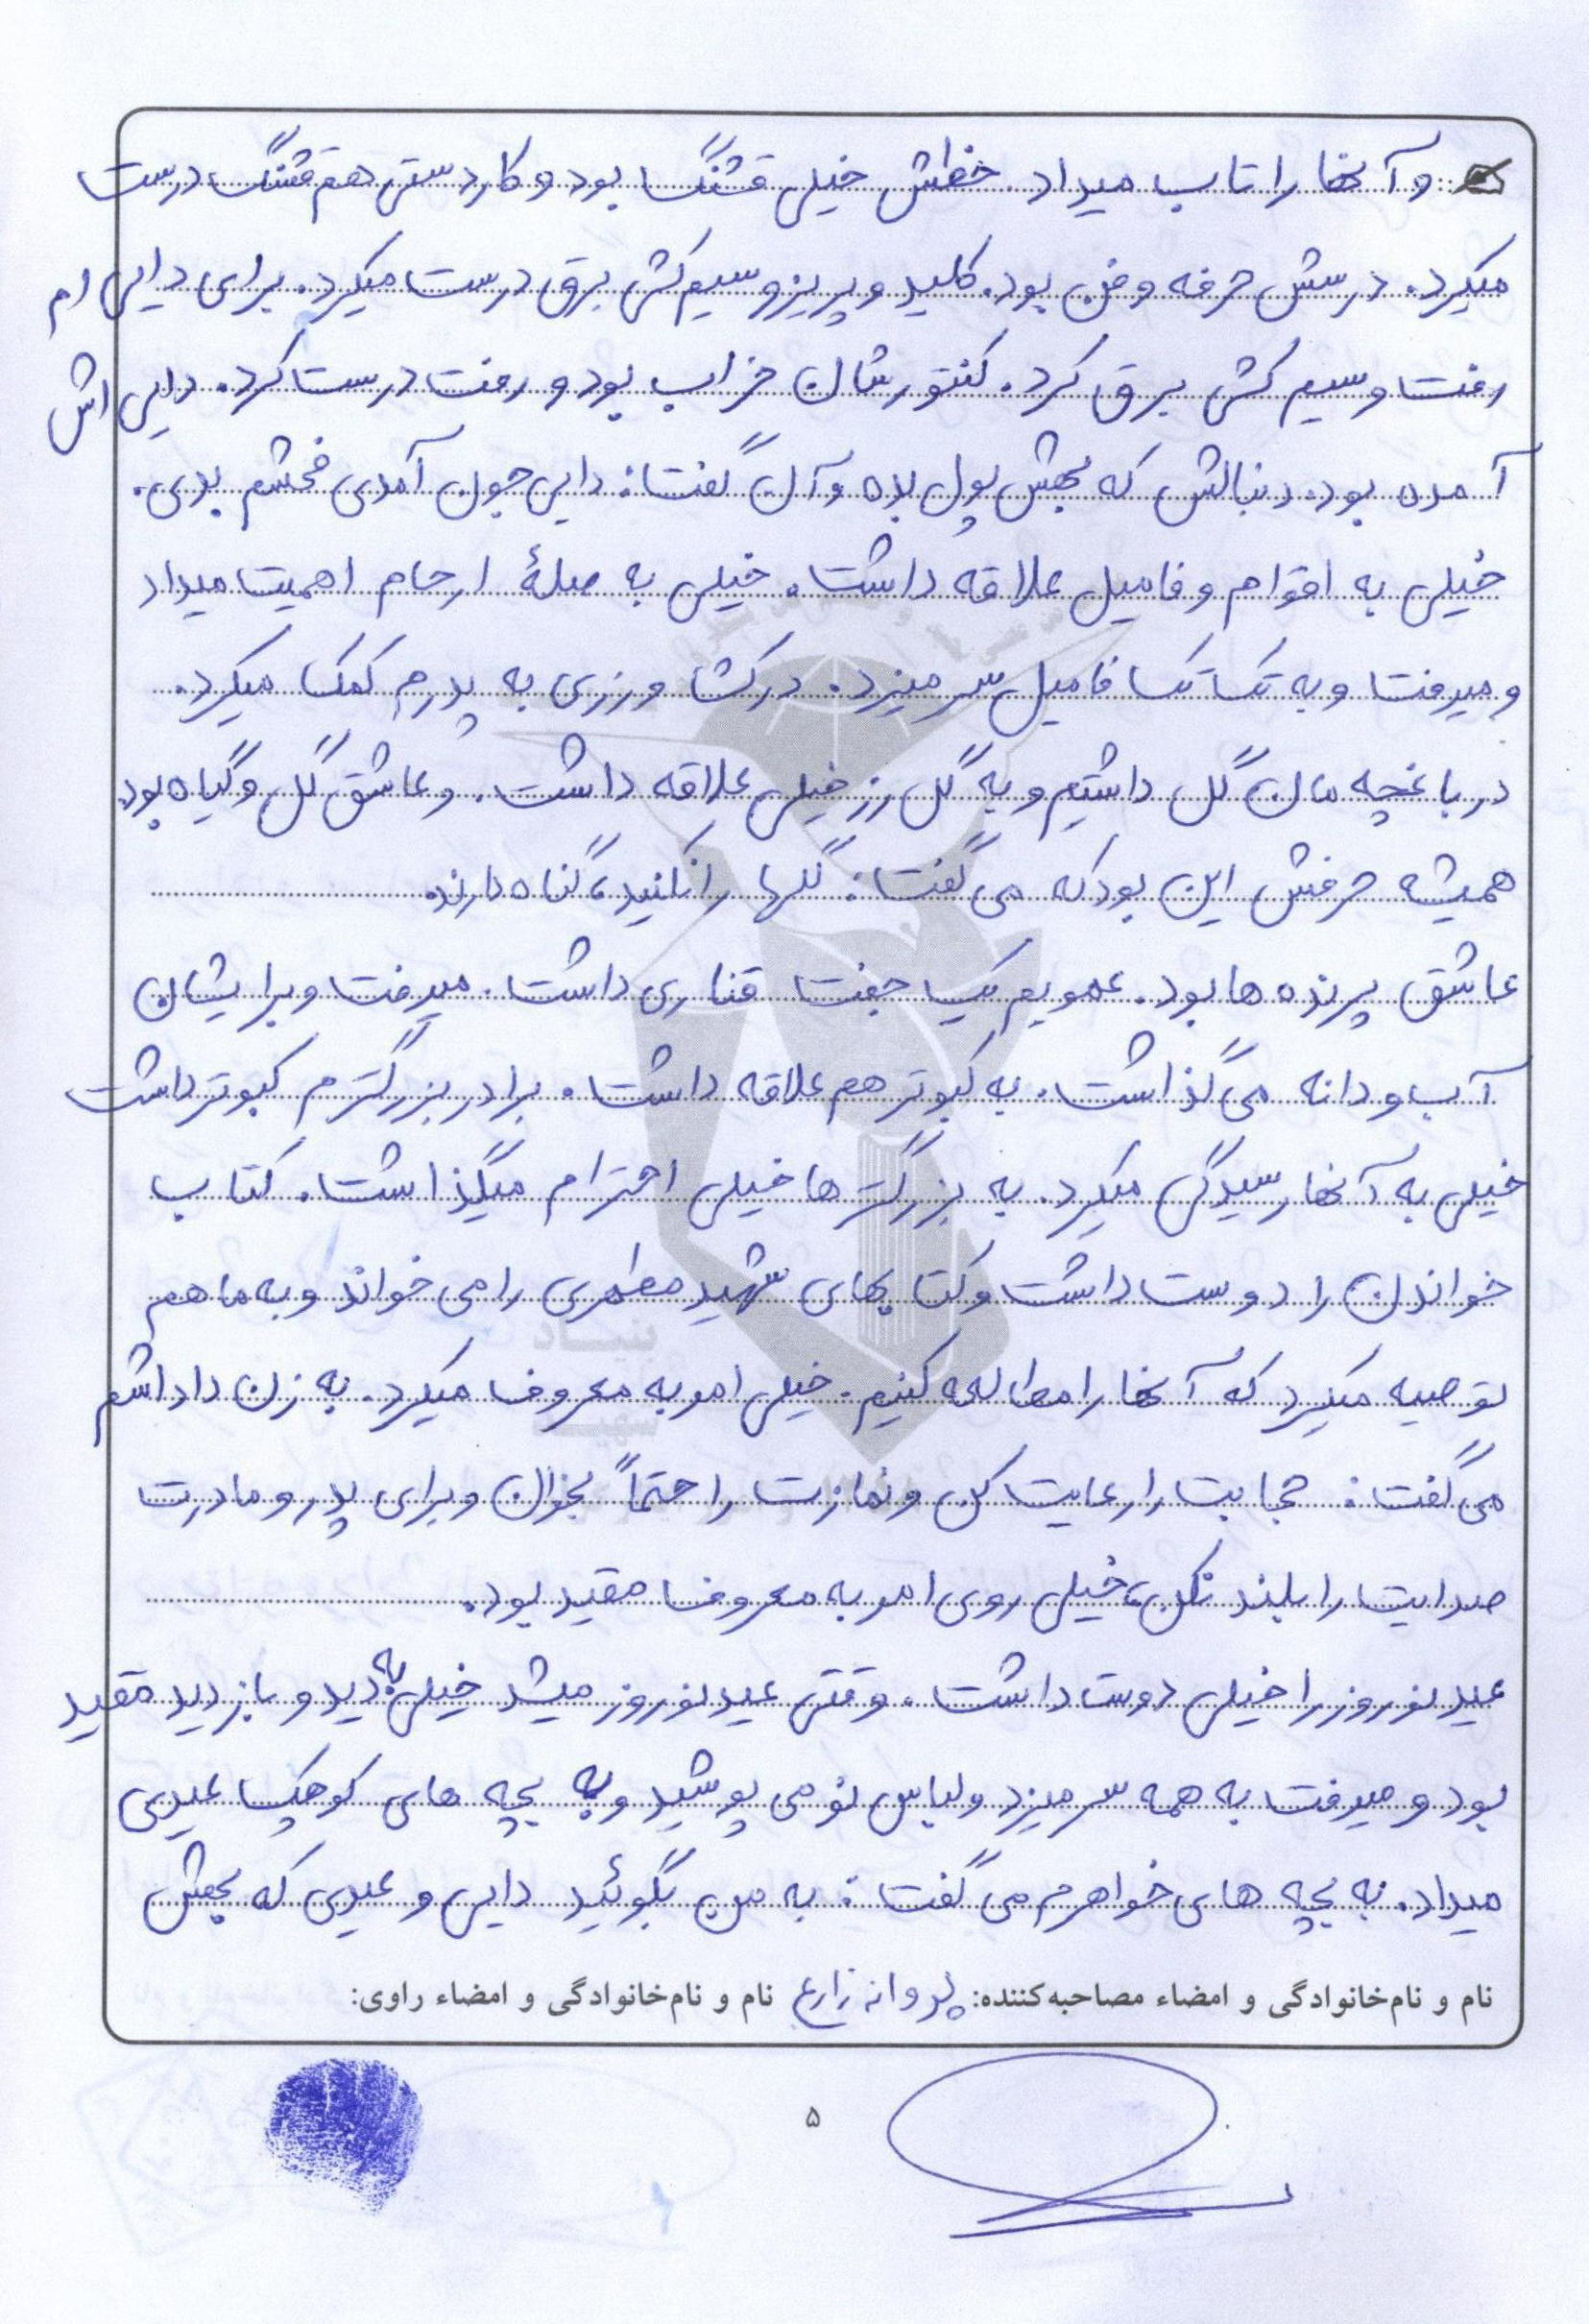 و آنها را تاب میداد. خطش خیلی قشنگ بود و کاردستی هم قشنگ درست
میکرد. درسش حرفه و فن بود. کلید و پریز و سیم کشی برق درست میکرد. برای دایی ام
رفت و سیم کشی برق کرد. کنتورشان خراب بود و رفت درست کرد. دایی اش
آمده بود دنبالش که بهش پول بده و آن گفت: دایی جون آمدی فحشم بدی.
خیلی به اقوام و فامیل علاقه داشت. خیلی به صلهٔ ارحام اهمیت میداد
و میرفت و به تک تک فامیل سر میزد. در کشاورزی به پدرم کمک میکرد.
در باغچه مان گل داشتیم و به گل رز خیلی علاقه داشت. و عاشق گل و گیاه بود
همیشه حرفش این بود که می گفت: گلها را نکنید، گناه دارند.
عاشق پرنده ها بود. عمویم یک جفت قناری داشت. میرفت و برایشان
آب و دانه می گذاشت. به کبوتر هم علاقه داشت. برادر بزرگترم کبوتر داشت
خیلی به آنها رسیدگی میکرد. به بزرگترها خیلی احترام میگذاشت. کتاب
خواندن را دوست داشت و کتابهای شهید مطهری را می خواند و به ما هم
توصیه میکرد که آنها را مطالعه کنیم. خیلی امر به معروف میکرد. به زن داداشم
می گفت: حجابت را رعایت کن و نمازت را حتماً بخوان و برای پدر و مادرت
صدایت را بلند نکن، خیلی روی امر به معروف مقید بود.
عید نوروز را خیلی دوست داشت. وقتی عید نوروز میشد خیلی به دید و بازدید مقید
بود و میرفت به همه سر میزد و لباس نو می پوشید و به بچه های کوچک عیدی
میداد. به بچه های خواهرم می گفت: به من بگوئید دایی و عیدی که بهش
نام و نام‌خانوادگی و امضاء مصاحبه‌کننده: پروانه زارع نام و نام‌خانوادگی و امضاء راوی:
۵
بنیاد
شهید